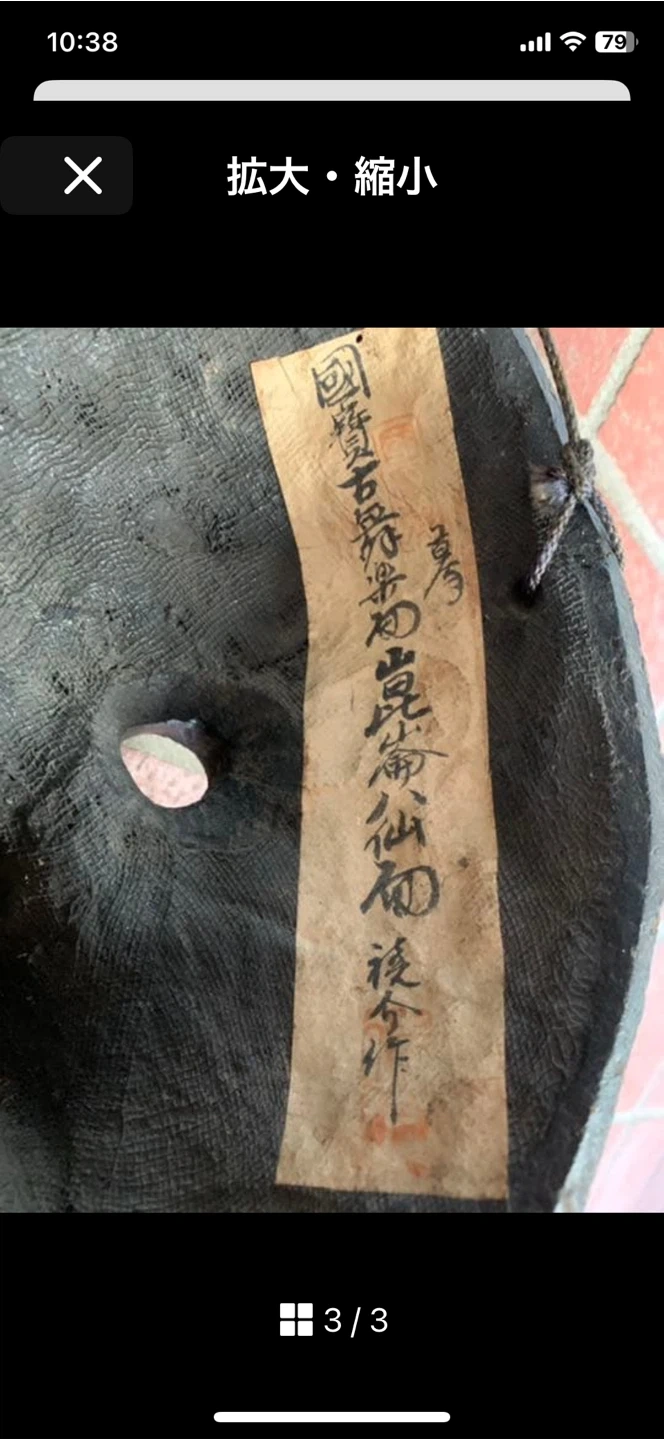 10:38
79
拡大・縮小
國寶古舞楽面
崑崙八仙面
作
3 / 3